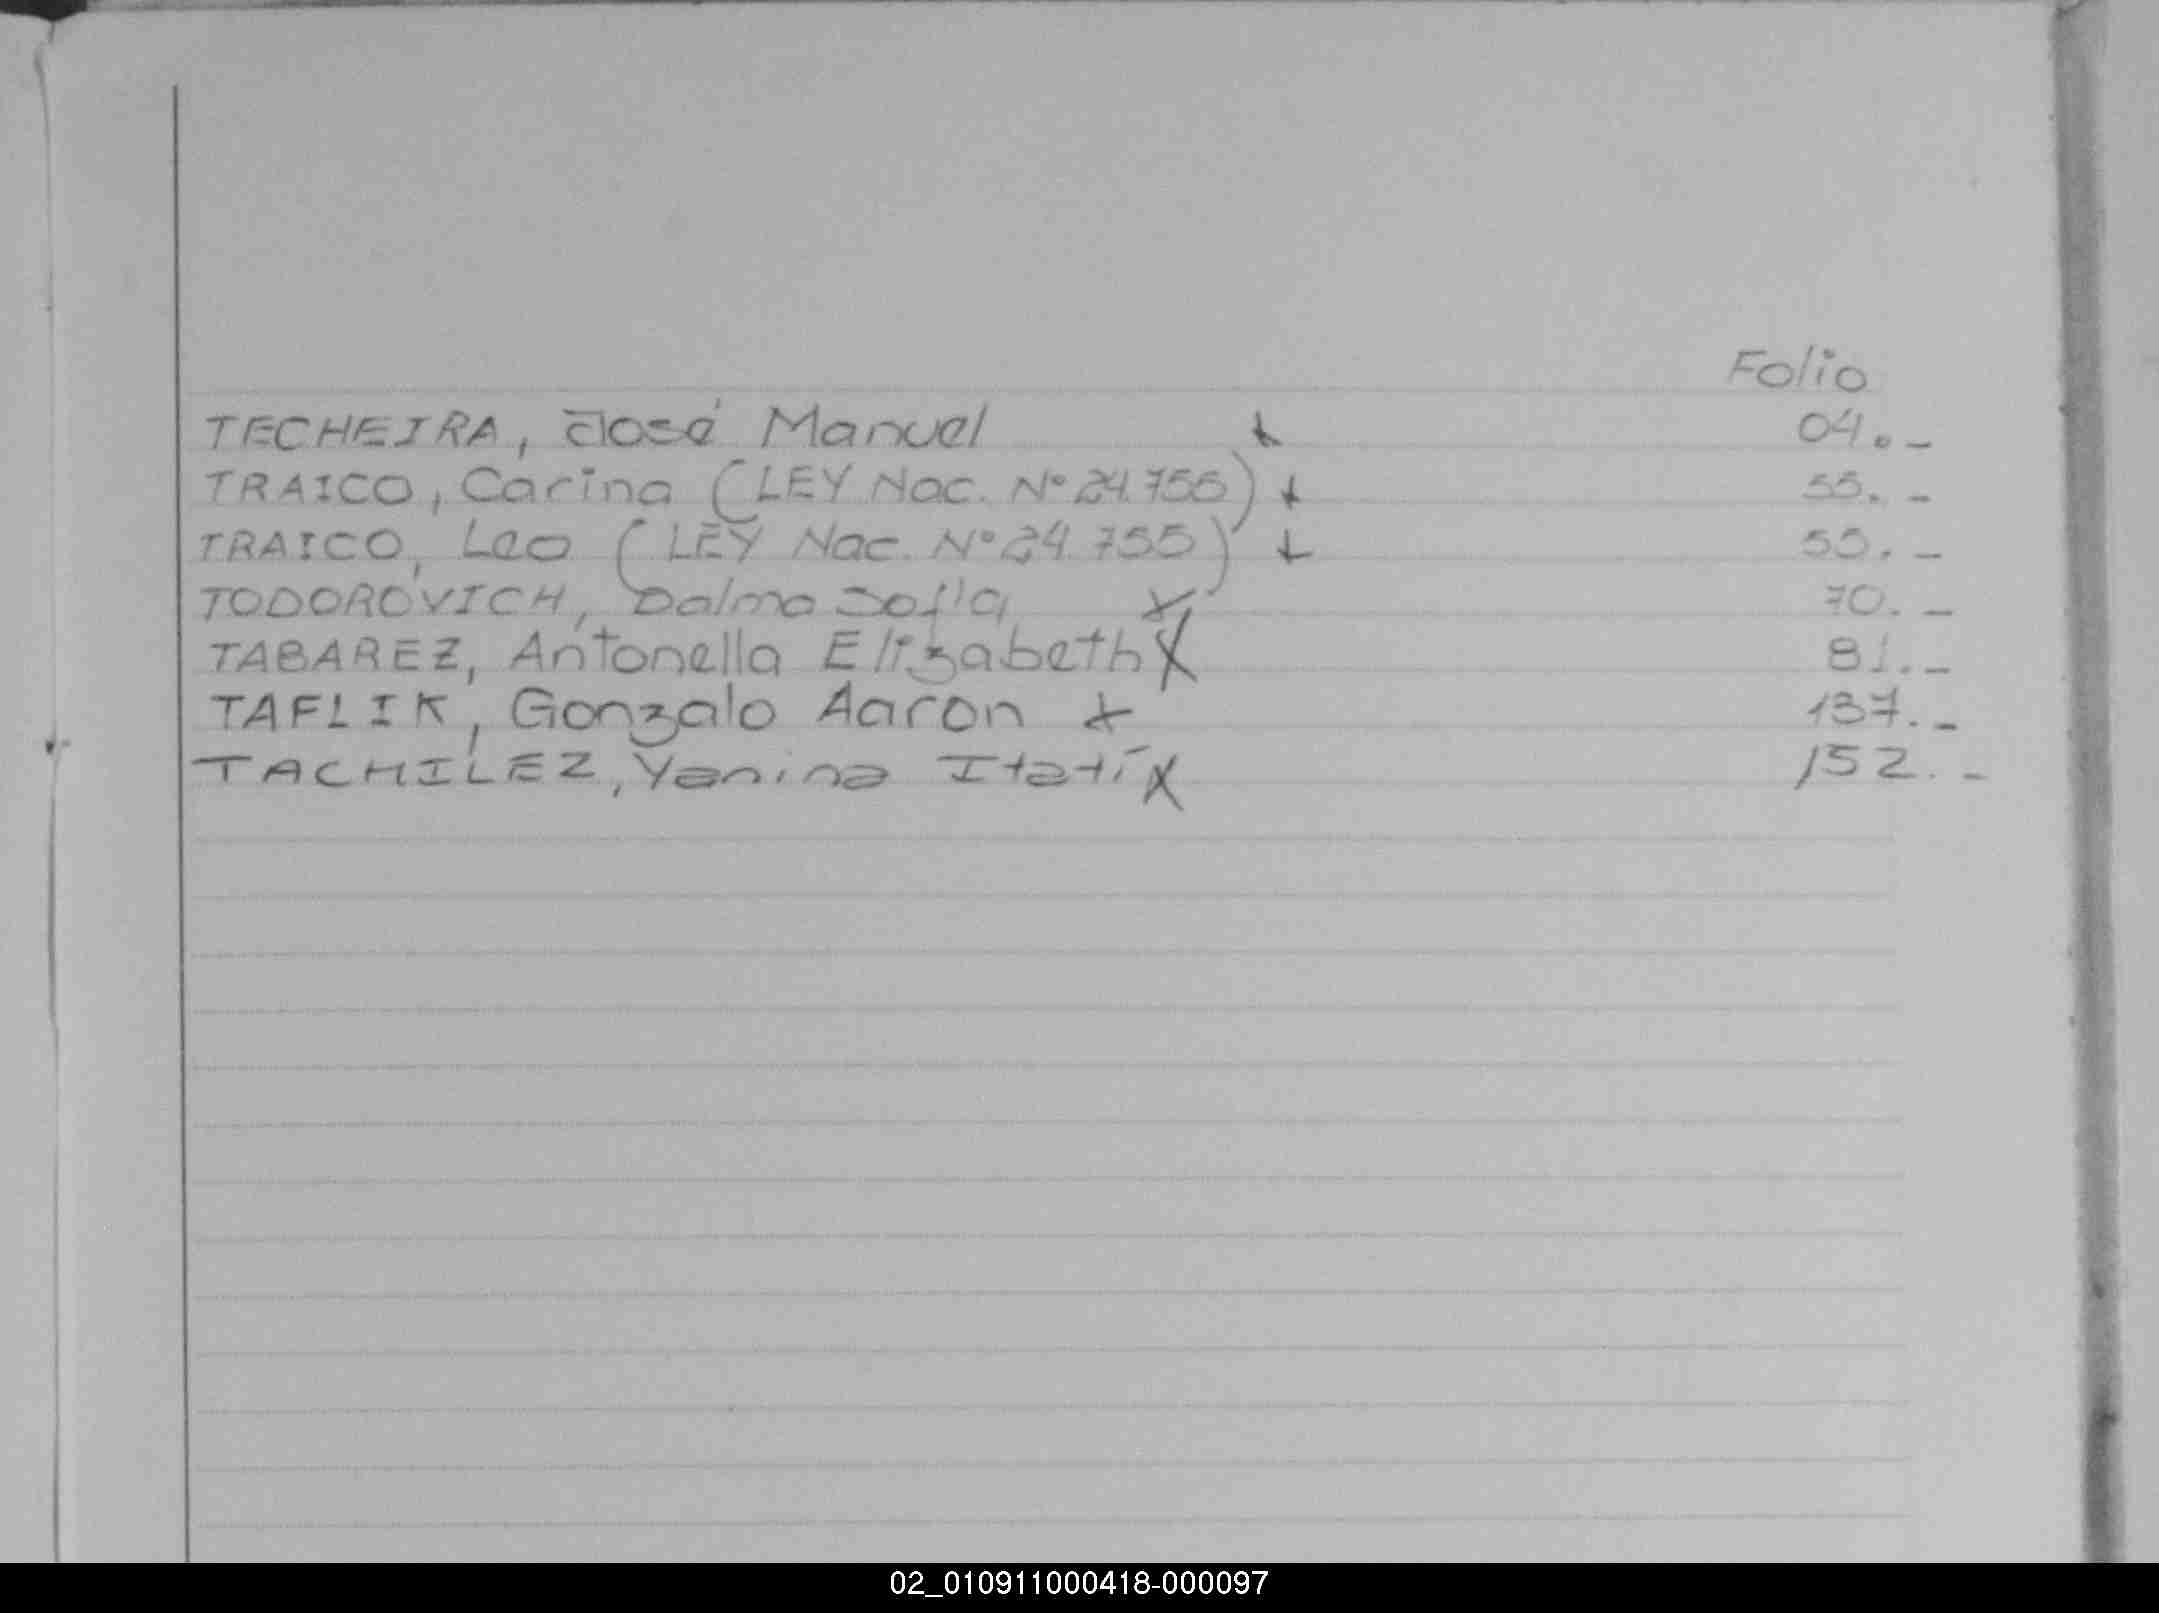 Folio
TECHEIRA, José Manuel + 04.-
TRAICO, Carina (LEY Nac. N° 24.755) + 55.-
TRAICO, Leo (LEY Nac. N° 24.755) + 55.-
TODOROVICH, Dalma Sofía x 70.-
TABAREZ, Antonella Elizabeth X 81.-
TAFLIK, Gonzalo Aaron x 137.-
TACHILEZ, Yanina Itatí X 152.-
02_010911000418-000097